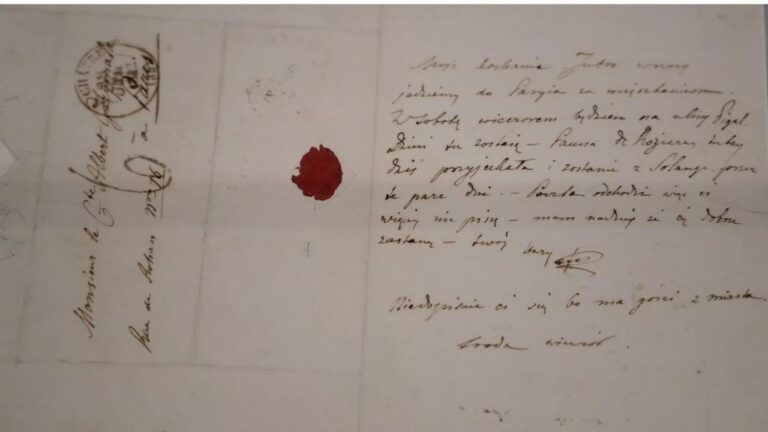 Moje Kochanie Jutro znowu
jedziemy do Paryża za mieszkaniem.
W Sobotę wieczorem będziem na ulicy Pigal.
Dzieci tu zostają – Panna de Rozières tutaj
dziś przyjechała i zostanie z Solange przez
te parę dni. – Poczta odchodzi więc ci
więcej nie piszę – mam nadzieję że cię dobrze
zastanę – twój
Niedopisuje ci się bo ma gości z miasta.
Środa wieczór.
Monsieur le Cte Albert
Rue de Rohan No 6 à Paris